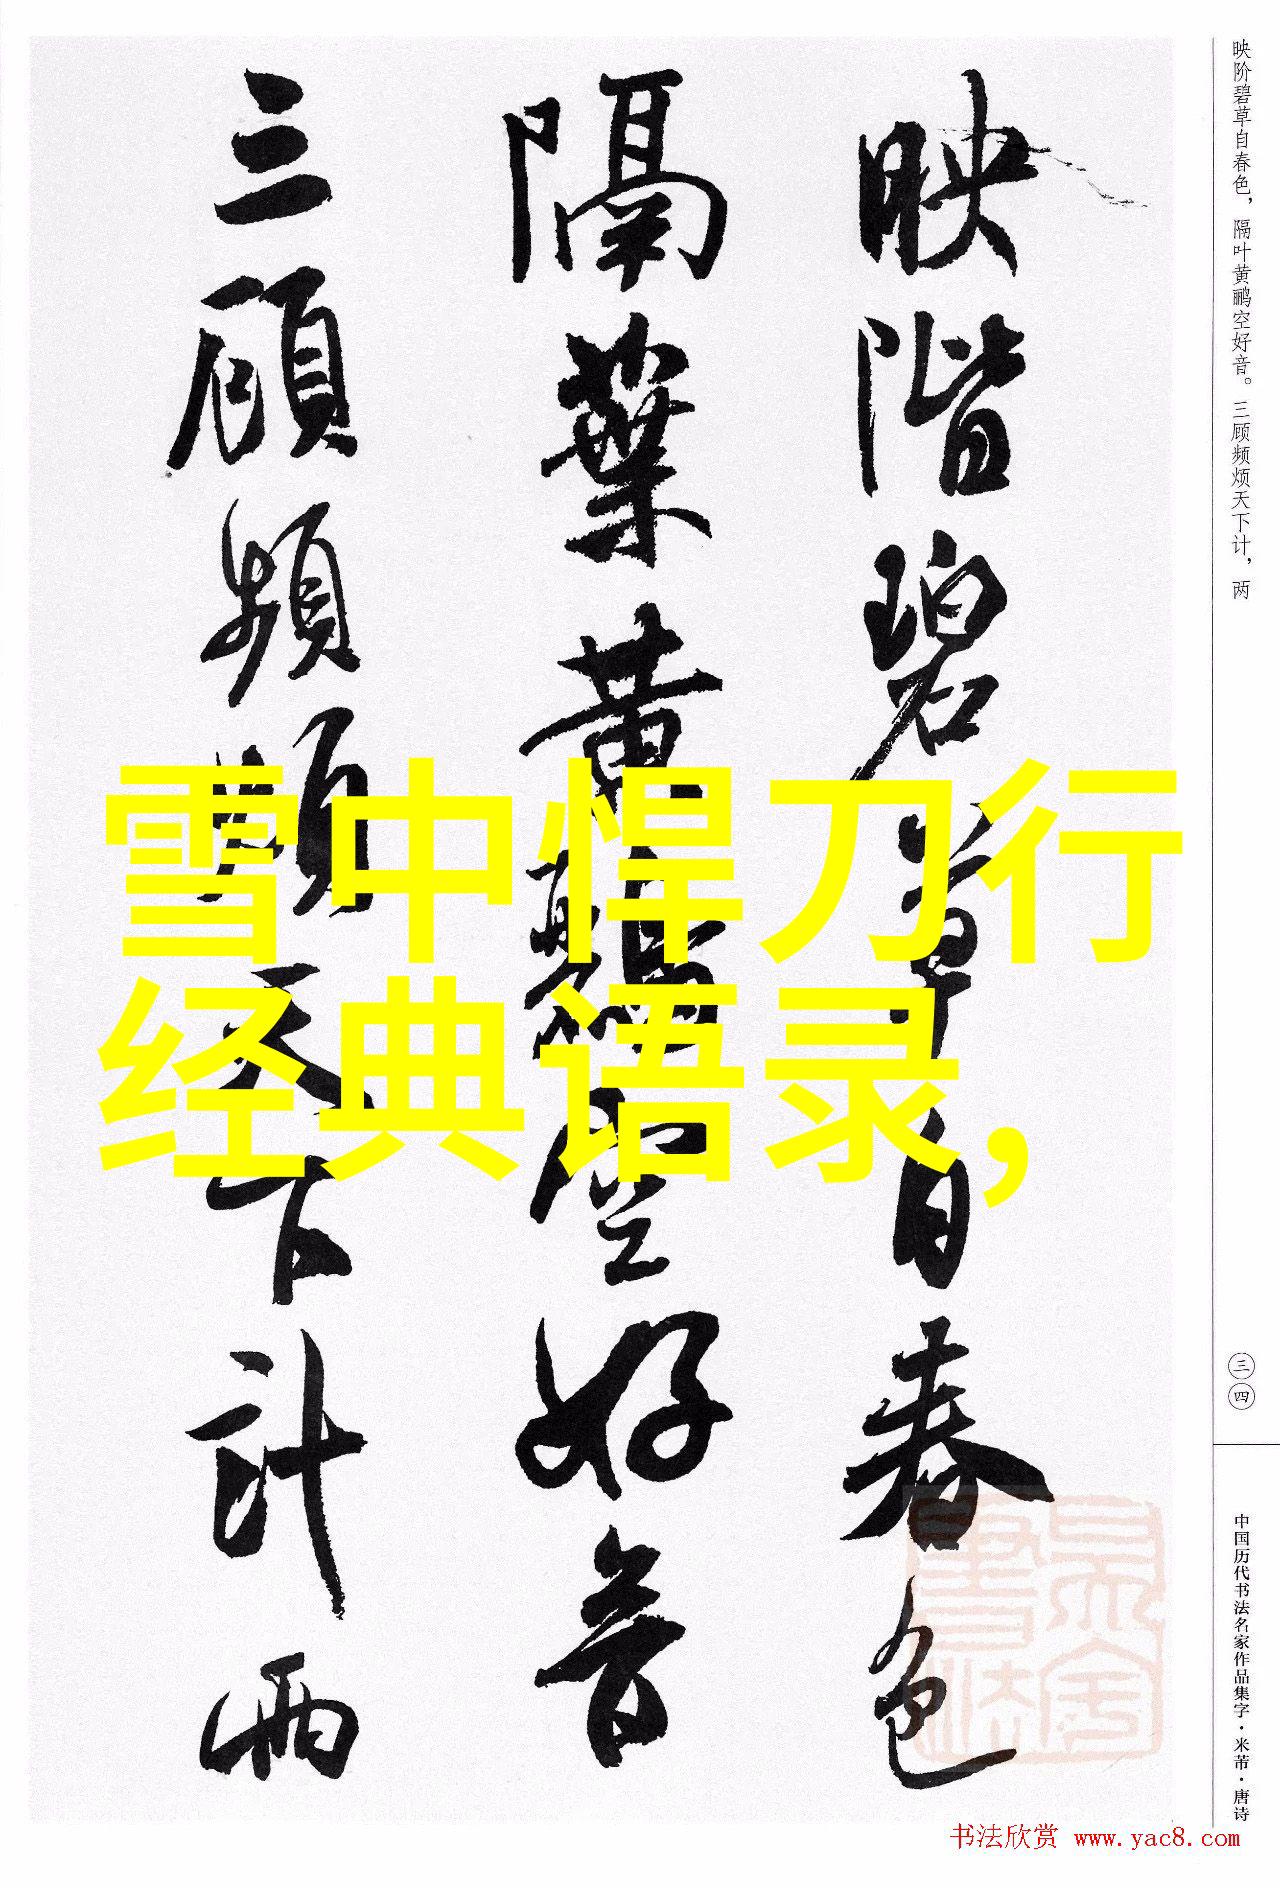 映阶碧草自春色，隔叶黄鹂空好音。三顾频烦天下计，两
映階碧草自春色
隔葉黄鸝空好音
三顧頻煩天下計兩
雪中悍刀行
经典语录，
三四
中国历代书法名家作品集字·米芾·唐诗
书法欣赏 www.yac8.com